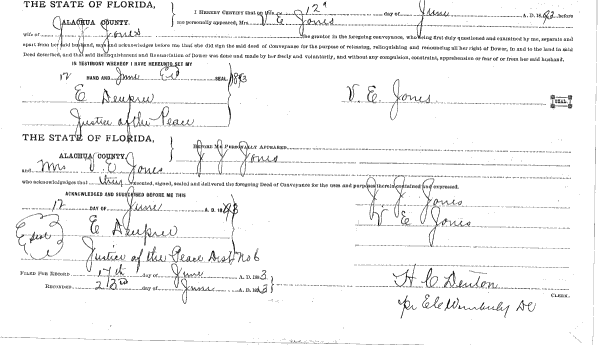 THE STATE OF FLORIDA,
ALACHUA COUNTY.
I HEREBY CERTIFY That on this 12th day of June A. D. 1893 before
me personally appeared, Mrs. V. E. Jones
wife of J. J. Jones the grantor in the foregoing conveyance, who being first duly questioned and examined by me, separate and
apart from her said husband, says and acknowledges before me that she did sign the said deed of Conveyance for the purpose of releasing, relinquishing and renouncing all her right of Dower, in and to the land in said
Deed described, and that said Relinquishment and Renunciation of Dower was done and made by her freely and voluntarily, and without any compulsion, constraint, apprehension or fear of or from her said husband.
IN TESTIMONY WHEREOF I HAVE HEREUNTO SET MY
HAND AND SEAL 12 June 1893
E Dempree
Justice of the Peace
V. E. Jones
SEAL
THE STATE OF FLORIDA,
ALACHUA COUNTY.
BEFORE ME PERSONALLY APPEARED
J J Jones
and Mrs V. E Jones
who acknowledges that they executed, signed, sealed and delivered the foregoing Deed of Conveyance for the uses and purposes therein contained and expressed.
ACKNOWLEDGED AND SUBSCRIBED BEFORE ME THIS
12 DAY OF June A. D. 1893
E Dempree
Justice of the Peace Dist No 6
J J Jones
V E Jones
FILED FOR RECORD 17th day of June A. D. 1893
RECORDED 23rd day of June A. D. 1893
H C Denton
CLERK.
pr E C Wimberly DC